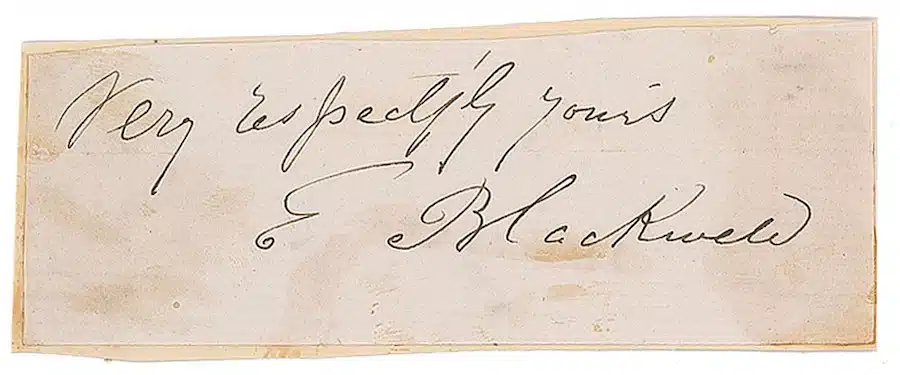 Very respectf'ly yours
E Blackwell